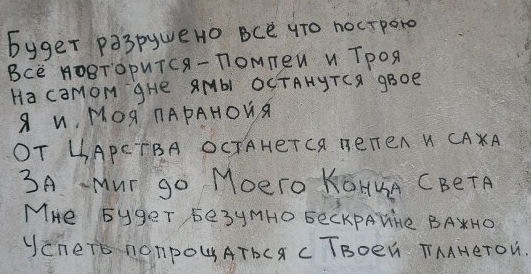 Будет разрушено всё что построю
Всё повторится - Помпеи и Троя
На самом дне ямы останутся двое
Я и Моя паранойя
От Царства останется пепел и сажа
За миг до Моего Конца Света
Мне будет безумно бескрайне важно
Успеть попрощаться с Твоей планетой.